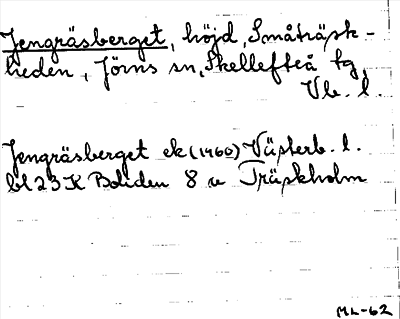 Jengräsberget, höjd, Småträsk-
heden, Jörns sn, Skellefteå tg,
Vb. l.
Jengräsberget ek (1960) Västerb. l.
bl 23 K Boliden 8 a Träskholm
ML-62